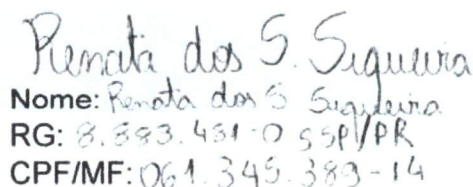 Renata dos S. Siqueira
Nome: Renata dos S Siqueira
RG: 8.883.431-0 SSP/PR
CPF/MF: 061.345.389-14